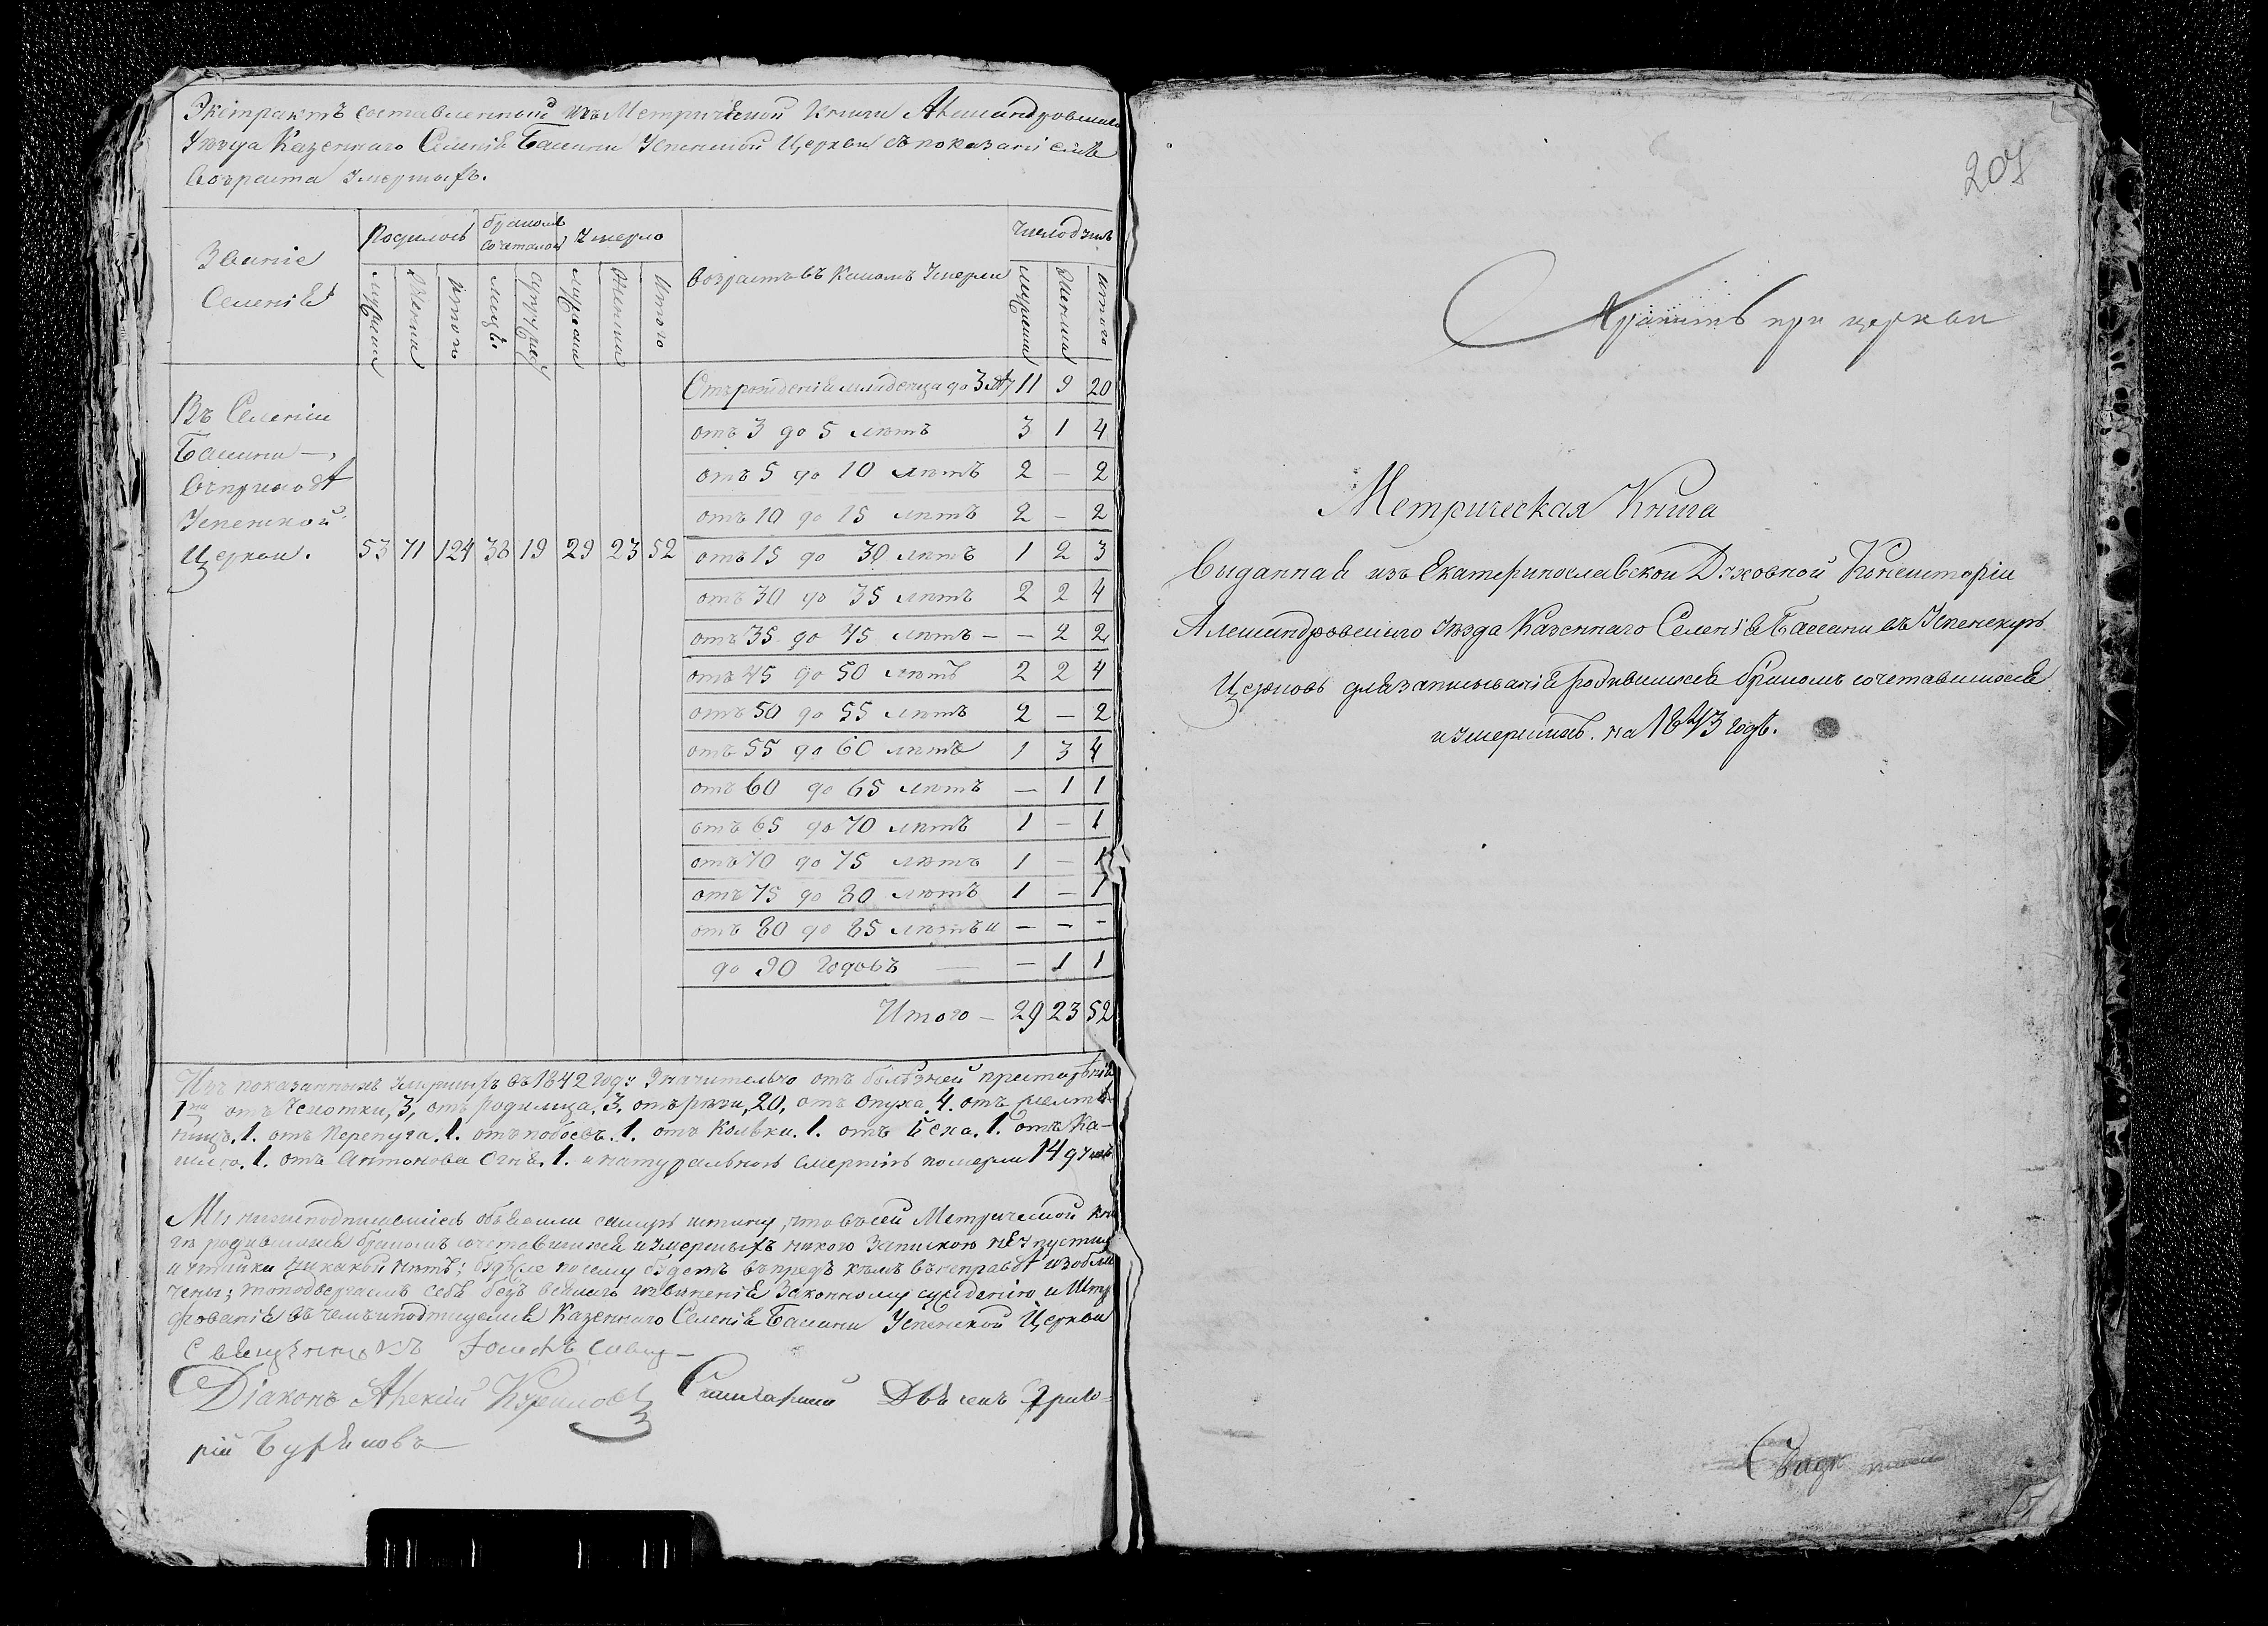 Экстрактъ составленный изъ Метрической Книги Александровскаго
Уезда Казеннаго Селенія Басани Успенской Церкви съ показаніемъ
возраста умершихъ.
Званіе
Селенія
Родилось
Бракомъ
сочеталось
Умерло
возрастъ въ какомъ Умерли
Число душъ
Мужеска
Женска
Итого
Лицъ
Супруж
Мужеска
Женска
Итого
Мужеска
Женска
Итого
Въ Селеніи
Басани —,
въ приходѣ
Успенской
Церкви. 53 71 124 38 19 29 23 52
Отъ рожденія младенца до 3 лѣт 11 9 20
отъ 3 до 5 лѣтъ 3 1 4
отъ 5 до 10 лѣтъ 2 — 2
отъ 10 до 15 лѣтъ 2 — 2
отъ 15 до 30 лѣтъ 1 2 3
отъ 30 до 35 лѣтъ 2 2 4
отъ 35 до 45 лѣтъ — — 2 2
отъ 45 до 50 лѣтъ 2 2 4
отъ 50 до 55 лѣтъ 2 — 2
отъ 55 до 60 лѣтъ 1 3 4
отъ 60 до 65 лѣтъ — 1 1
отъ 65 до 70 лѣтъ 1 — 1
отъ 70 до 75 лѣтъ 1 — 1
отъ 75 до 80 лѣтъ 1 — 1
отъ 80 до 85 лѣтъ и — — -
до 90 годовъ — — 1 1
Итого — 29 23 52
Изъ показанныхъ умершихъ въ 1842 году Значительно отъ болѣзней
отъ Чахотки, 3, отъ родимца. 3. отъ 20, отъ опуха. 4. отъ
1. отъ Перепуга. 1. отъ побоевъ. 1. отъ Кольки. 1. отъ 1. отъ Ка-
шлю. 1. отъ Антонова Огня. 1. и натуральною смертію померли 14 душъ
Мы нижеподписавшіесь объявили самую истину, что въ сей Метрической Кни
гѣ родившихся бракомъ сочетавшихся и умершихъ никого запискою не упустили
и утайки никакой нѣтъ; будеже посему будетъ въ предъ кѣмъ въ неправдѣ изобли
чены; то подвергаемъ себя безъ всякаго извиненія Законному сужденію и Штра
фованія въ чемъ и подписуемся Казеннаго Селенія Басани Успенской Церкви
Священникъ
Діаконъ Алексій Курилов
рій
207
Хранить при церкви
Метрическая Книга
Выданная изъ Екатеринославской Духовной Консисторіи
Александровскаго Уезда Казеннаго Селенія Басани въ Успенскую
Церковь для записыванія родившихся бракомъ сочетавшихся
и умершихъ. на 1843 годъ.